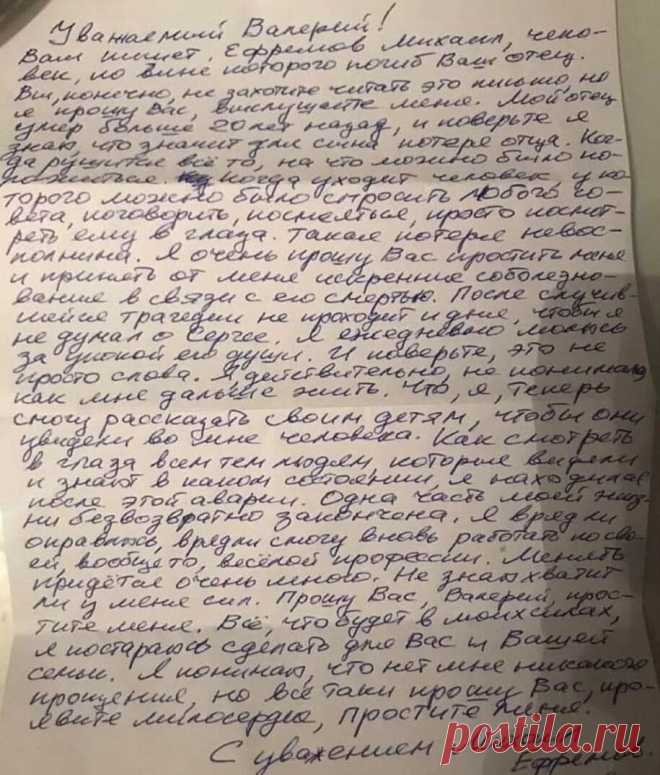 Уважаемый Валерий!
Вам пишет, Ефремов Михаил, чело-
век, по вине которого погиб Ваш отец.
Вы, конечно, не захотите читать это письмо, но
я прошу Вас, выслушайте меня. Мой отец
умер больше 20 лет назад, и поверьте я
знаю, что значит для сына потеря отца. Ког-
да рушится всё то, на что можно было по-
ложиться. Когда уходит человек у ко
торого можно было спросить любого со-
вета, поговорить, посмеяться, просто посмот-
реть ему в глаза. Такая потеря невос-
полнима. Я очень прошу Вас простить меня
и принять от меня искренние соболезно-
вание в связи с его смертью. После случив-
шейся трагедии не проходит и дня, чтобы я
не думал о Сергее. Я ежедневно молюсь
за упокой его души. И поверьте, это не
просто слова. Я, действительно, не понимаю,
как мне дальше жить. Что, я, теперь
смогу рассказать своим детям, чтобы они
увидели во мне человека. Как смотреть
в глаза всем тем людям, которые видели
и знают в каком состоянии, я находился
после этой аварии. Одна часть моей жиз-
ни безвозвратно закончена. Я вряд ли
оправлюсь, вряд ли смогу вновь работать по сво-
ей, вообще то, весёлой профессии. Менять
придётся очень много. Не знаю хватит
ли у меня сил. Прошу Вас, Валерий, прос-
тите меня. Всё, что будет в моих силах,
я постараюсь сделать для Вас и Вашей
семьи. Я понимаю, что нет мне никакого
прощения, но всё таки прошу Вас, про-
явите милосердие, простите меня.
С уважением
Ефремов.
postila.ru